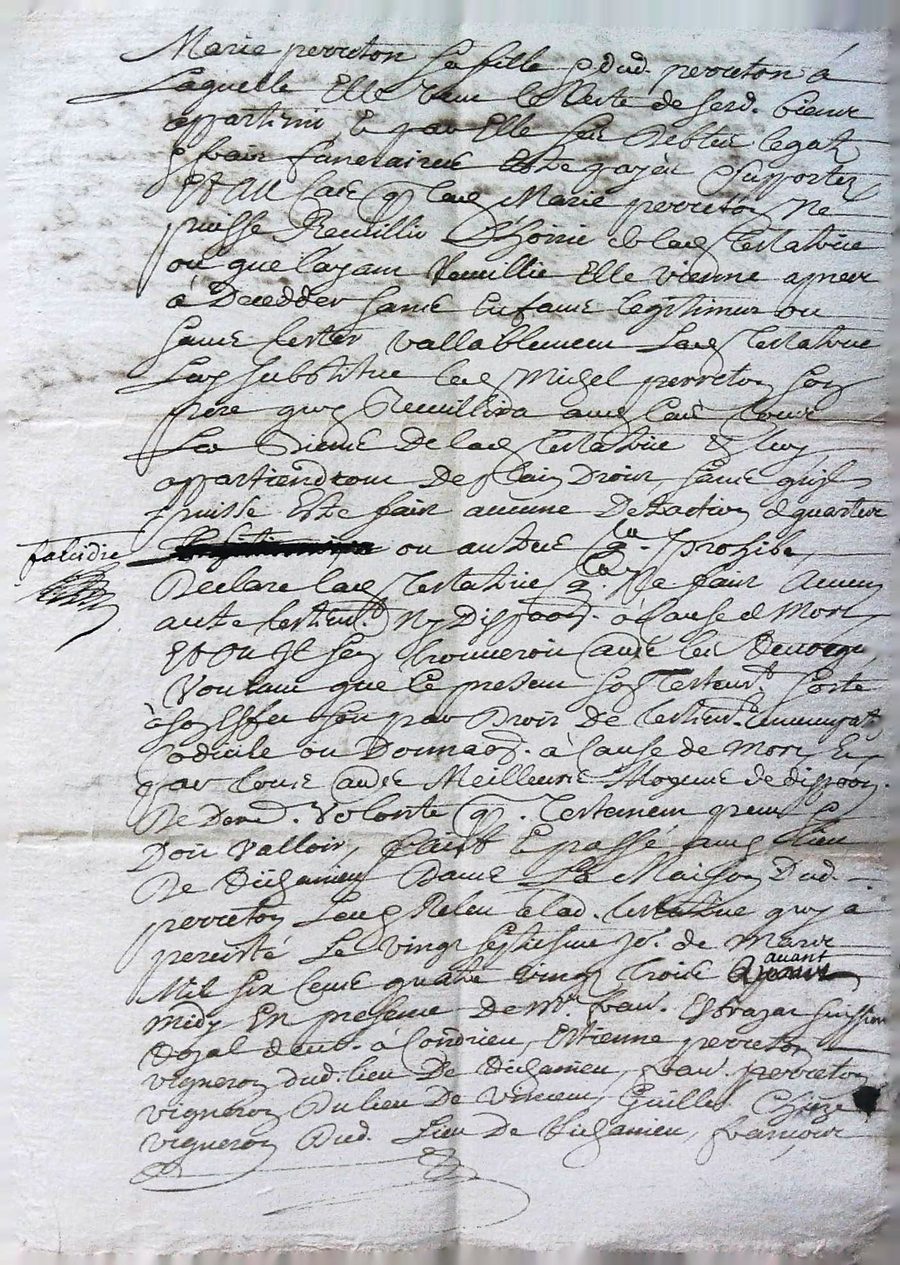 Marie perreton sa fille & dud. perreton à
laquelle Elle veut le Reste de sesd. biens
appartenir, E par Elle ses Debtes legatz
& frais funeraires Estre payés & supportez
Et Au Cas q lad Marie perreton Ne
puisse Recuillir L'hoirie de lad Testatrice
ou que l'ayant Recuillie Elle vienne apres
à Decedder sans Enfans legitimes ou
sans tester vallablement Lad Testatrice
Luy substitue led Michel perreton son
frere quy Recuillira aud Cas tous
Les Biens de lad Testatrice & luy
appartiendront de plain Droit sans qu'il
puisse Estre fait aucune Detraction de quarte
falcidie
ou autre q. Prohibe
Declare lad Testatrice q. Ne fait Aucun
autre testemt Ny Dispoon. à Cause de Mort
Et Ou Il sen trouveroit Cas les Revoqu
Voulant que le present son Testemt sorte
à son Effet soit par Droit de testemt. nuncupatf
Codicile ou Donnaon. à Cause de Mort Et
par tous autres Meilleurs Moyens de dispoon.
De Dern. Volonté q. Testement peut &
Doit Valloir, Faict & passé aud Lieu
De Dans La Maison Dud.
perreton Leu & Releu à lad. testatrice quy a
percisté Le vingt septiesme jor. de Mars
Mil six Cens quatre Vingt trois avant
midy En presence De Mr. fran.
à Condrieu, Estienne perreton
vigneron dud. lieu De fran. perreton
vigneron Du lieu De Verin, Guille.
vigneron Dud. Lieu De francois